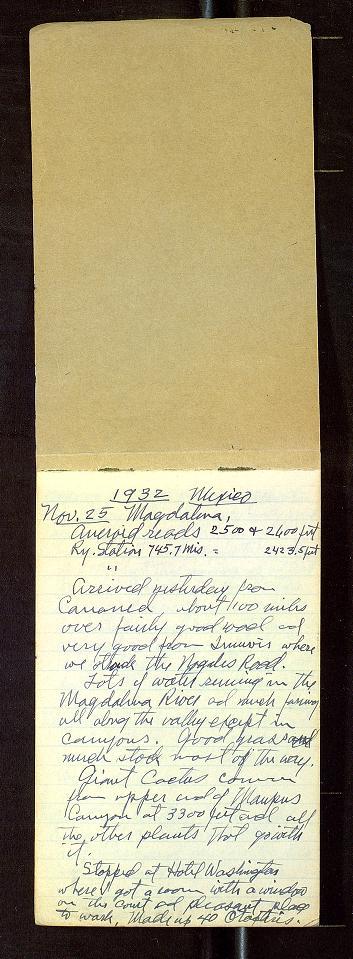 1932 Mexico
Nov. 25 Magdalena,
Aneroid reads 2500 & 2400 feet
Ry. Station 745.7 Mts. = 2423.5 feet
"
Arrived yesterday from
Cananea, about 100 miles
over fairly good road and
very good from Imuris where
we struck the Nogales Road.
Lots of water running in the
Magdalena River and much farming
all along the valley except in
canyons. Good grass and
much stock most of the way.
Giant Cactus comes in
from upper end of
Canyon at 3300 feet and all
the other plants that go with
it.
Stopped at Hotel Washington
where I got a room with a window
on the court and pleasant place
to wash. Made up 40